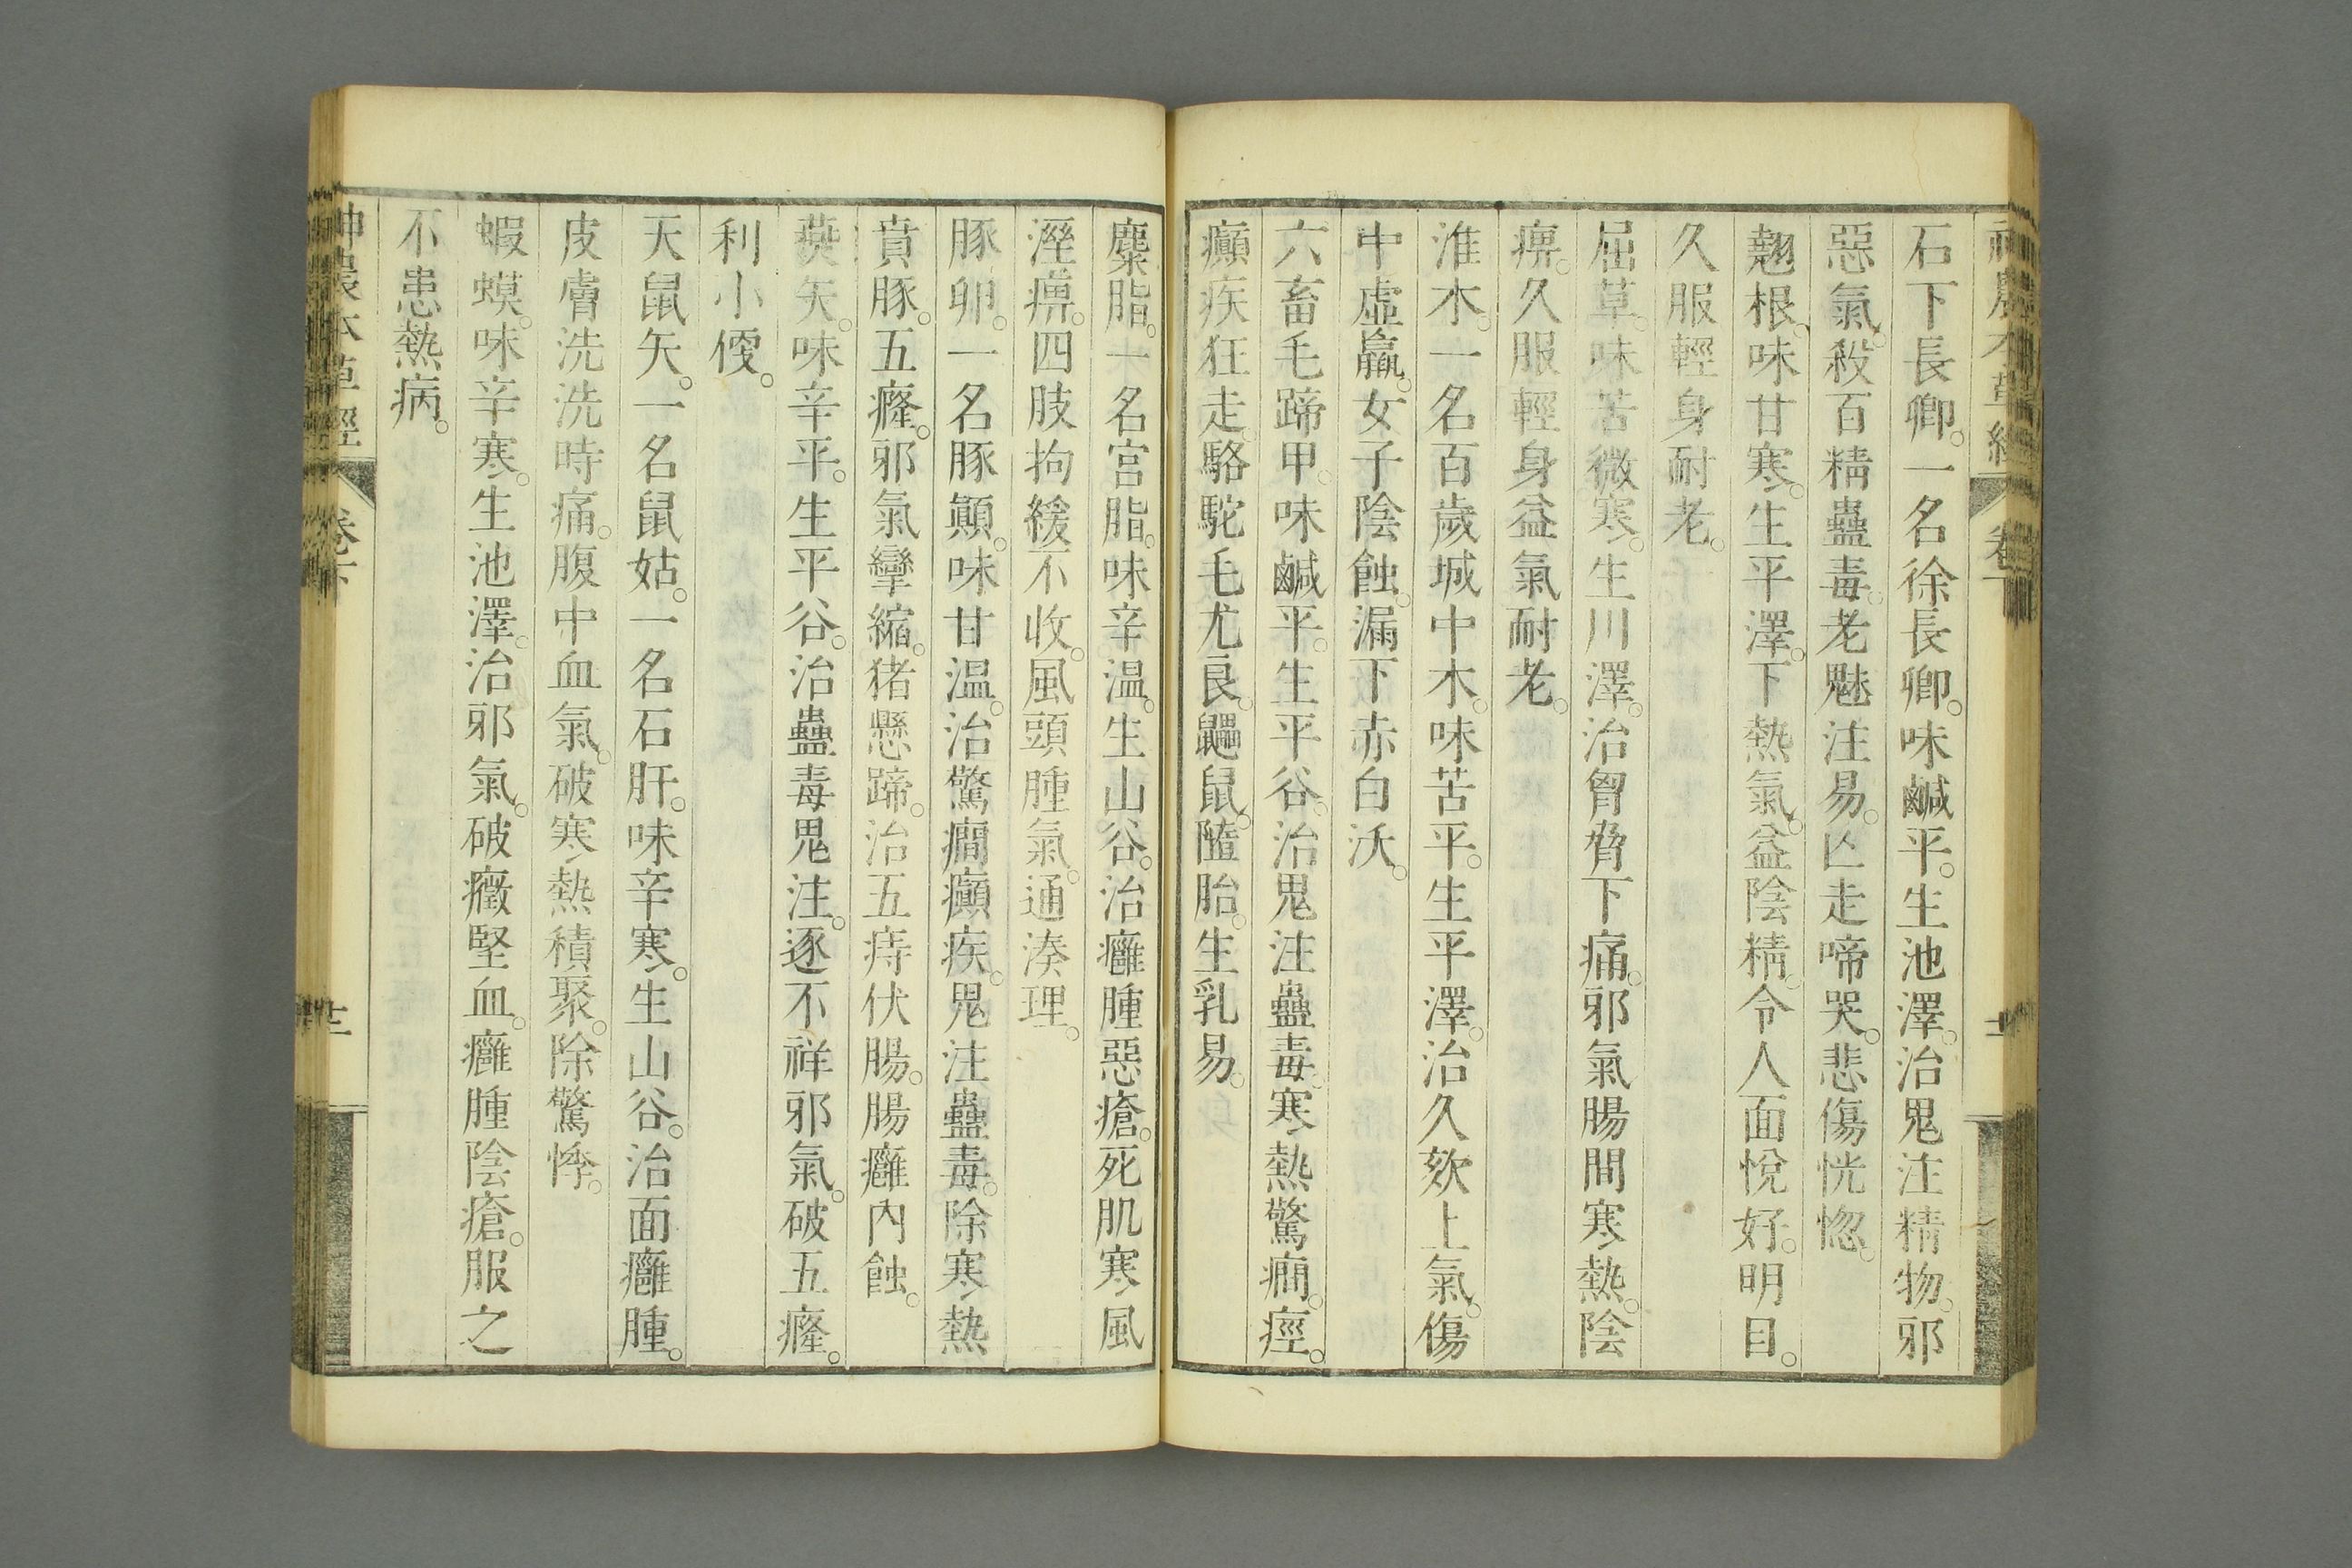 石下長卿。一名徐長卿。味鹹平。生池澤。治鬼注精物。邪
惡氣。殺百精蠱毒。老魅注易。亾走啼哭。悲傷恍惚。
翹根。味甘寒。生平澤。下熱氣。益陰精。令人面悅好。明目。
久服輕身耐老。
屈草。味苦微寒。生川澤。治胷脅下痛。邪氣腸間寒熱。陰
痹。久服輕身益氣耐老。
淮木。一名百歲城中木。味苦平。生平澤。治久欬上氣。傷
中虛羸。女子陰蝕。漏下赤白沃。
六畜毛蹄甲。味鹹平。生平谷。治鬼注蠱毒。寒熱驚癇。痙。
癲疾狂走。駱駝毛尤良。鼺鼠。墮胎。生乳易。
麋脂。一名宮脂。味辛溫。生山谷。治癰腫惡瘡。死肌寒風
溼痹。四肢拘緩不收。風頭腫氣。通湊理。
豚卵。一名豚顚。味甘溫。治驚癇癲疾。鬼注蠱毒。除寒熱
賁豚。五癃。邪氣攣縮。猪懸蹄。治五痔伏腸。腸癰內蝕。
燕矢。味辛平。生平谷。治蠱毒鬼注。逐不祥邪氣。破五癃。
利小㑻。
天鼠矢。一名鼠姑。一名石肝。味辛寒。生山谷。治面癰腫。
皮膚洗洗時痛。腹中血氣。破寒熱積聚。除驚悸。
蝦蟆。味辛寒。生池澤。治邪氣。破癥堅血。癰腫陰瘡。服之
不患熱病。
神農本草經 卷下 十二